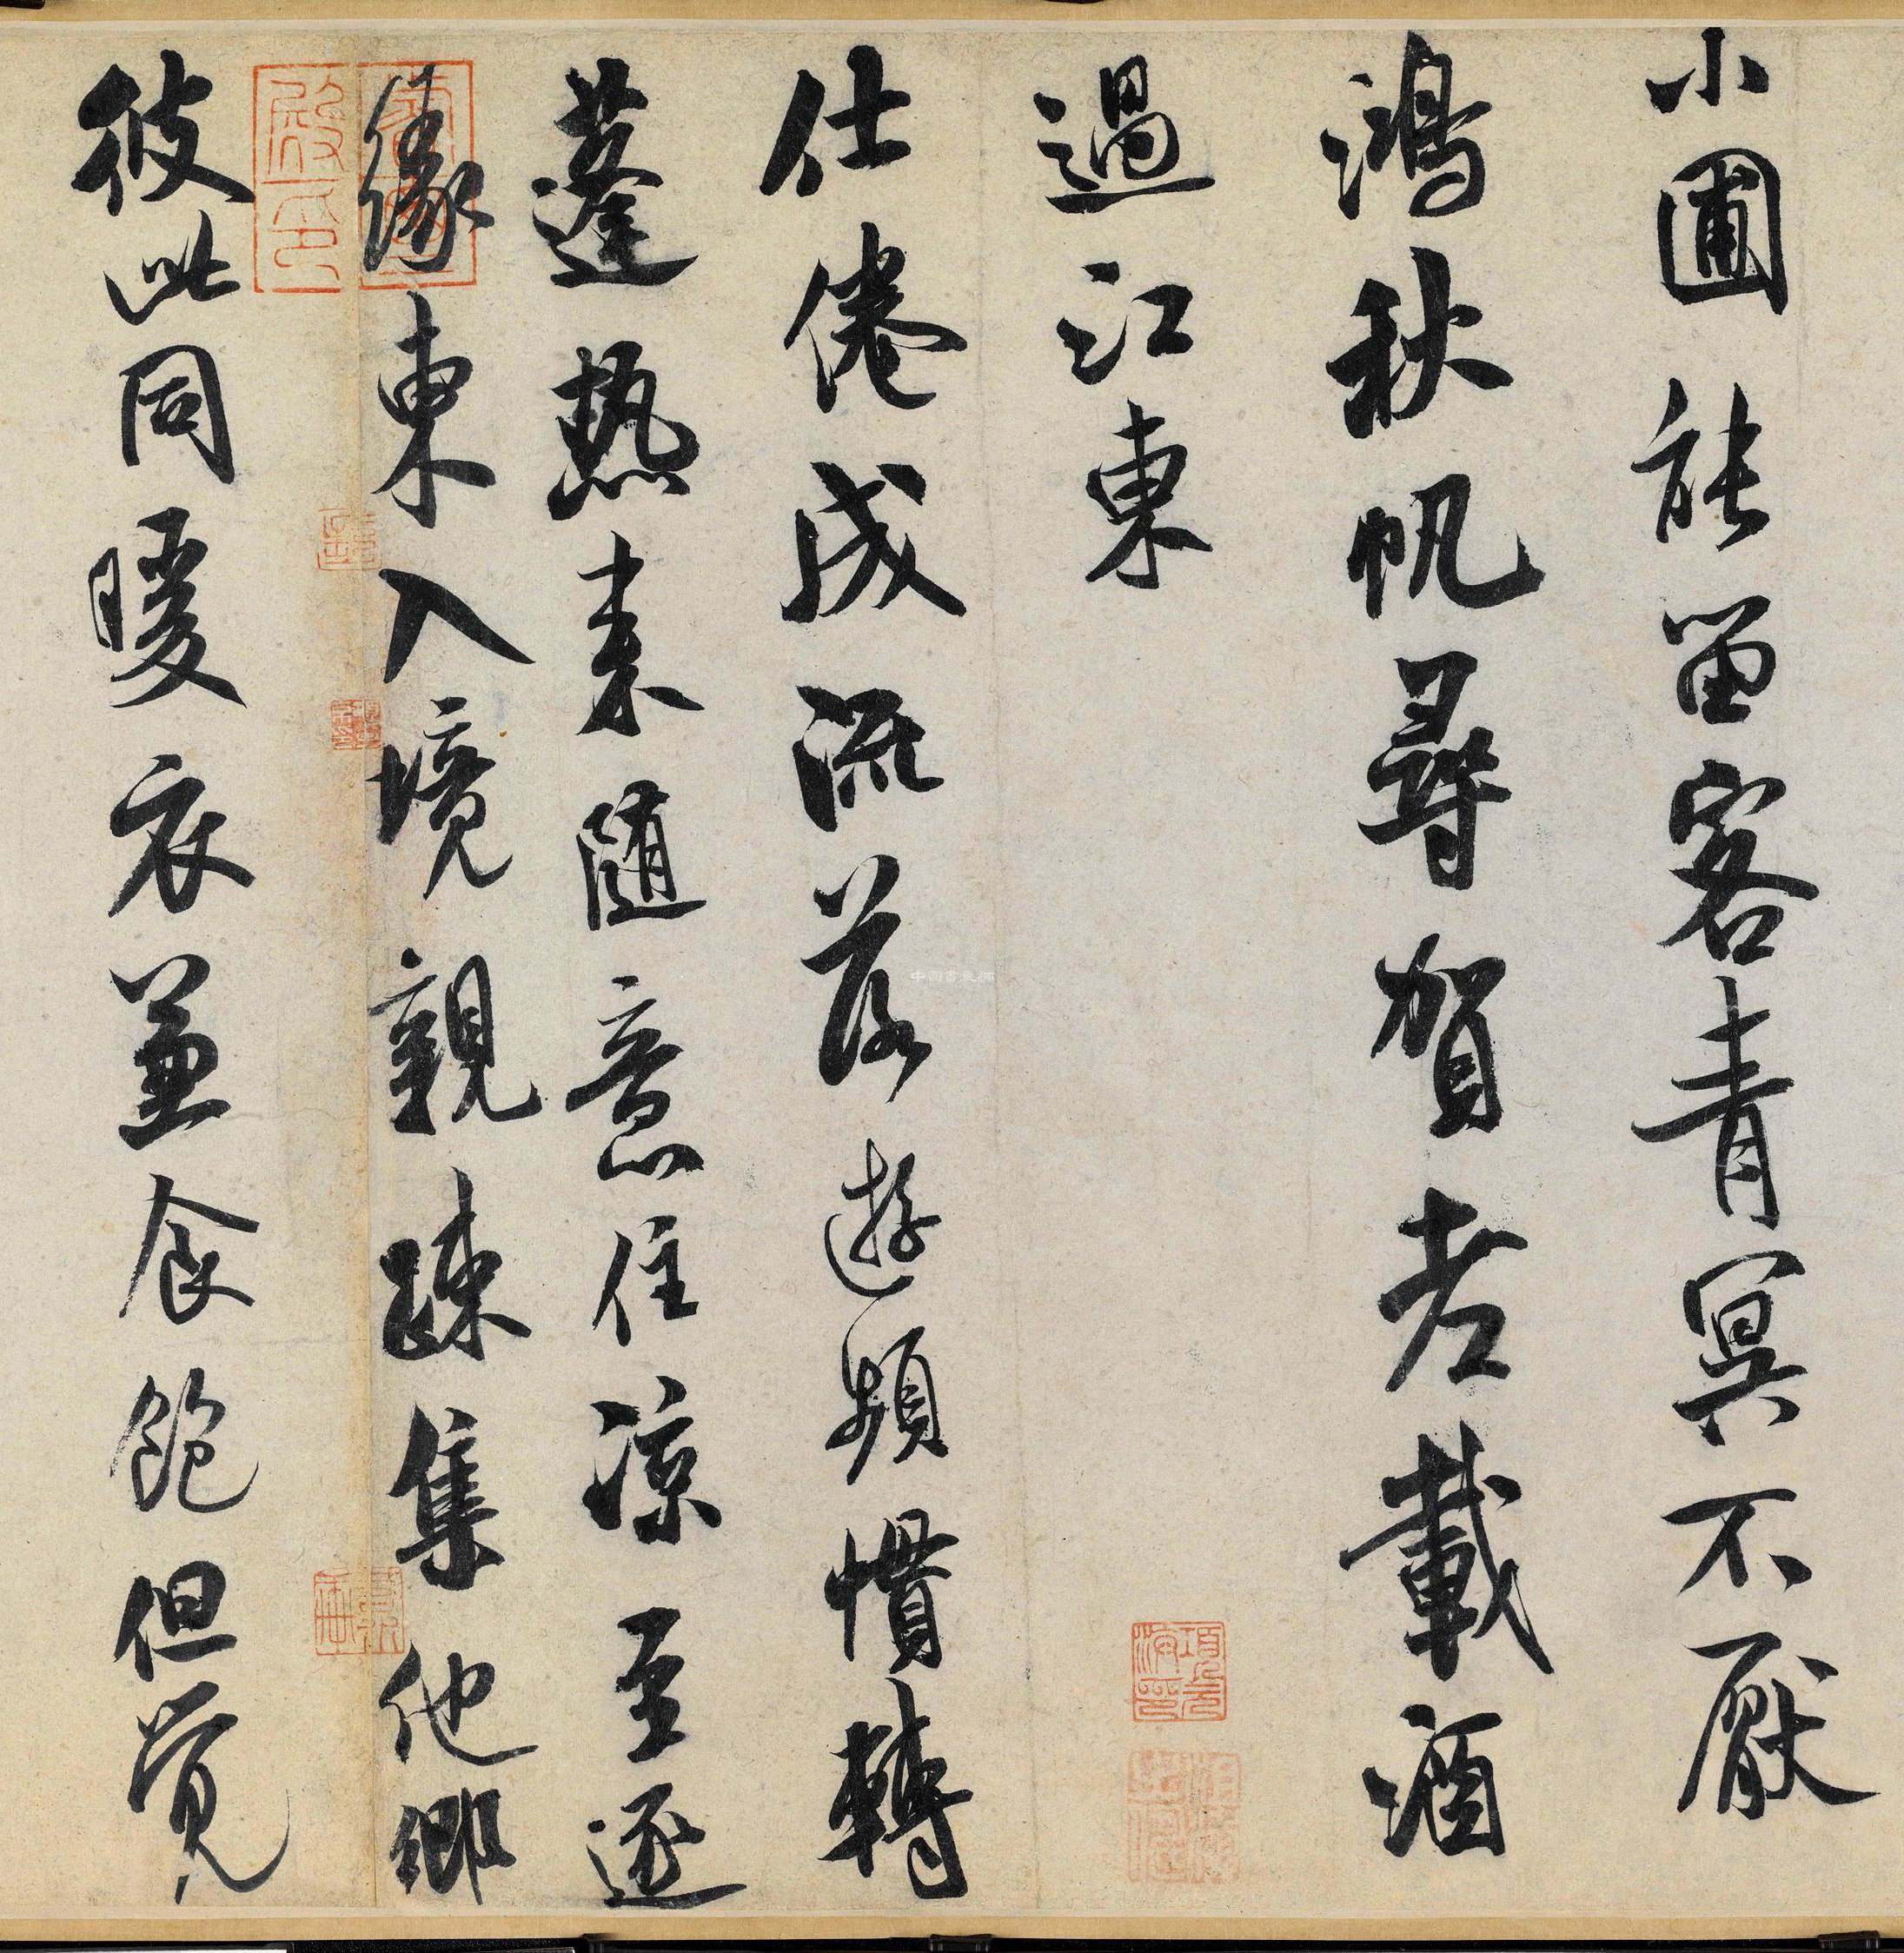 小圃能留客青冥不厭
鴻秋帆尋賀老載酒
過江東
仕倦成流落遊頻慣轉
蓬熱来随意住涼至逐
緣東入境親疎集他鄉
彼此同暖衣兼食飽但覺